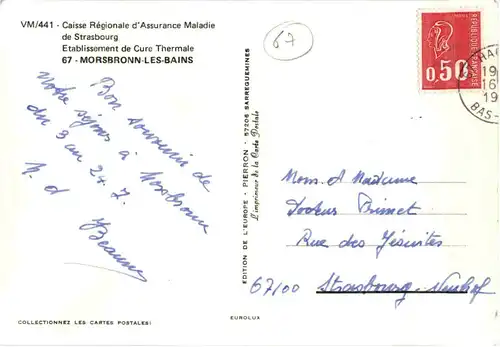 VM/441 - Caisse Régionale d'Assurance Maladie
de Strasbourg
Etablissement de Cure Thermale
67 - MORSBRONN-LES-BAINS
67
POSTES
REPUBLIQUE FRANÇAISE
0,50
BAS-
Bon souvenir de
notre séjour à Morsbronn
du 3 au 24.7.
EDITION DE L'EUROPE - PIERRON - 57206 SARREGUEMINES
L'imprimeur de la Carte Postale
Mons. et Madame
Rue des Jésuites
67100 Strasbourg-Neuhof
COLLECTIONNEZ LES CARTES POSTALES!
EUROLUX